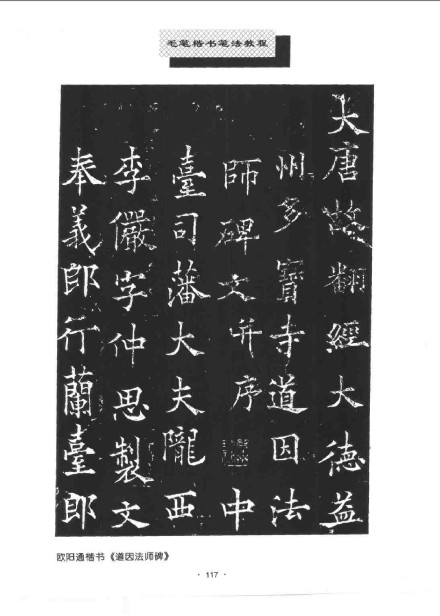 毛笔楷书笔法教程
大唐故翻經大德益
州多寶寺道因法
師碑文并序 中
臺司藩大夫隴西
李儼字仲思製文
奉義郎行蘭臺郎
欧阳通楷书《道因法师碑》
· 117 ·